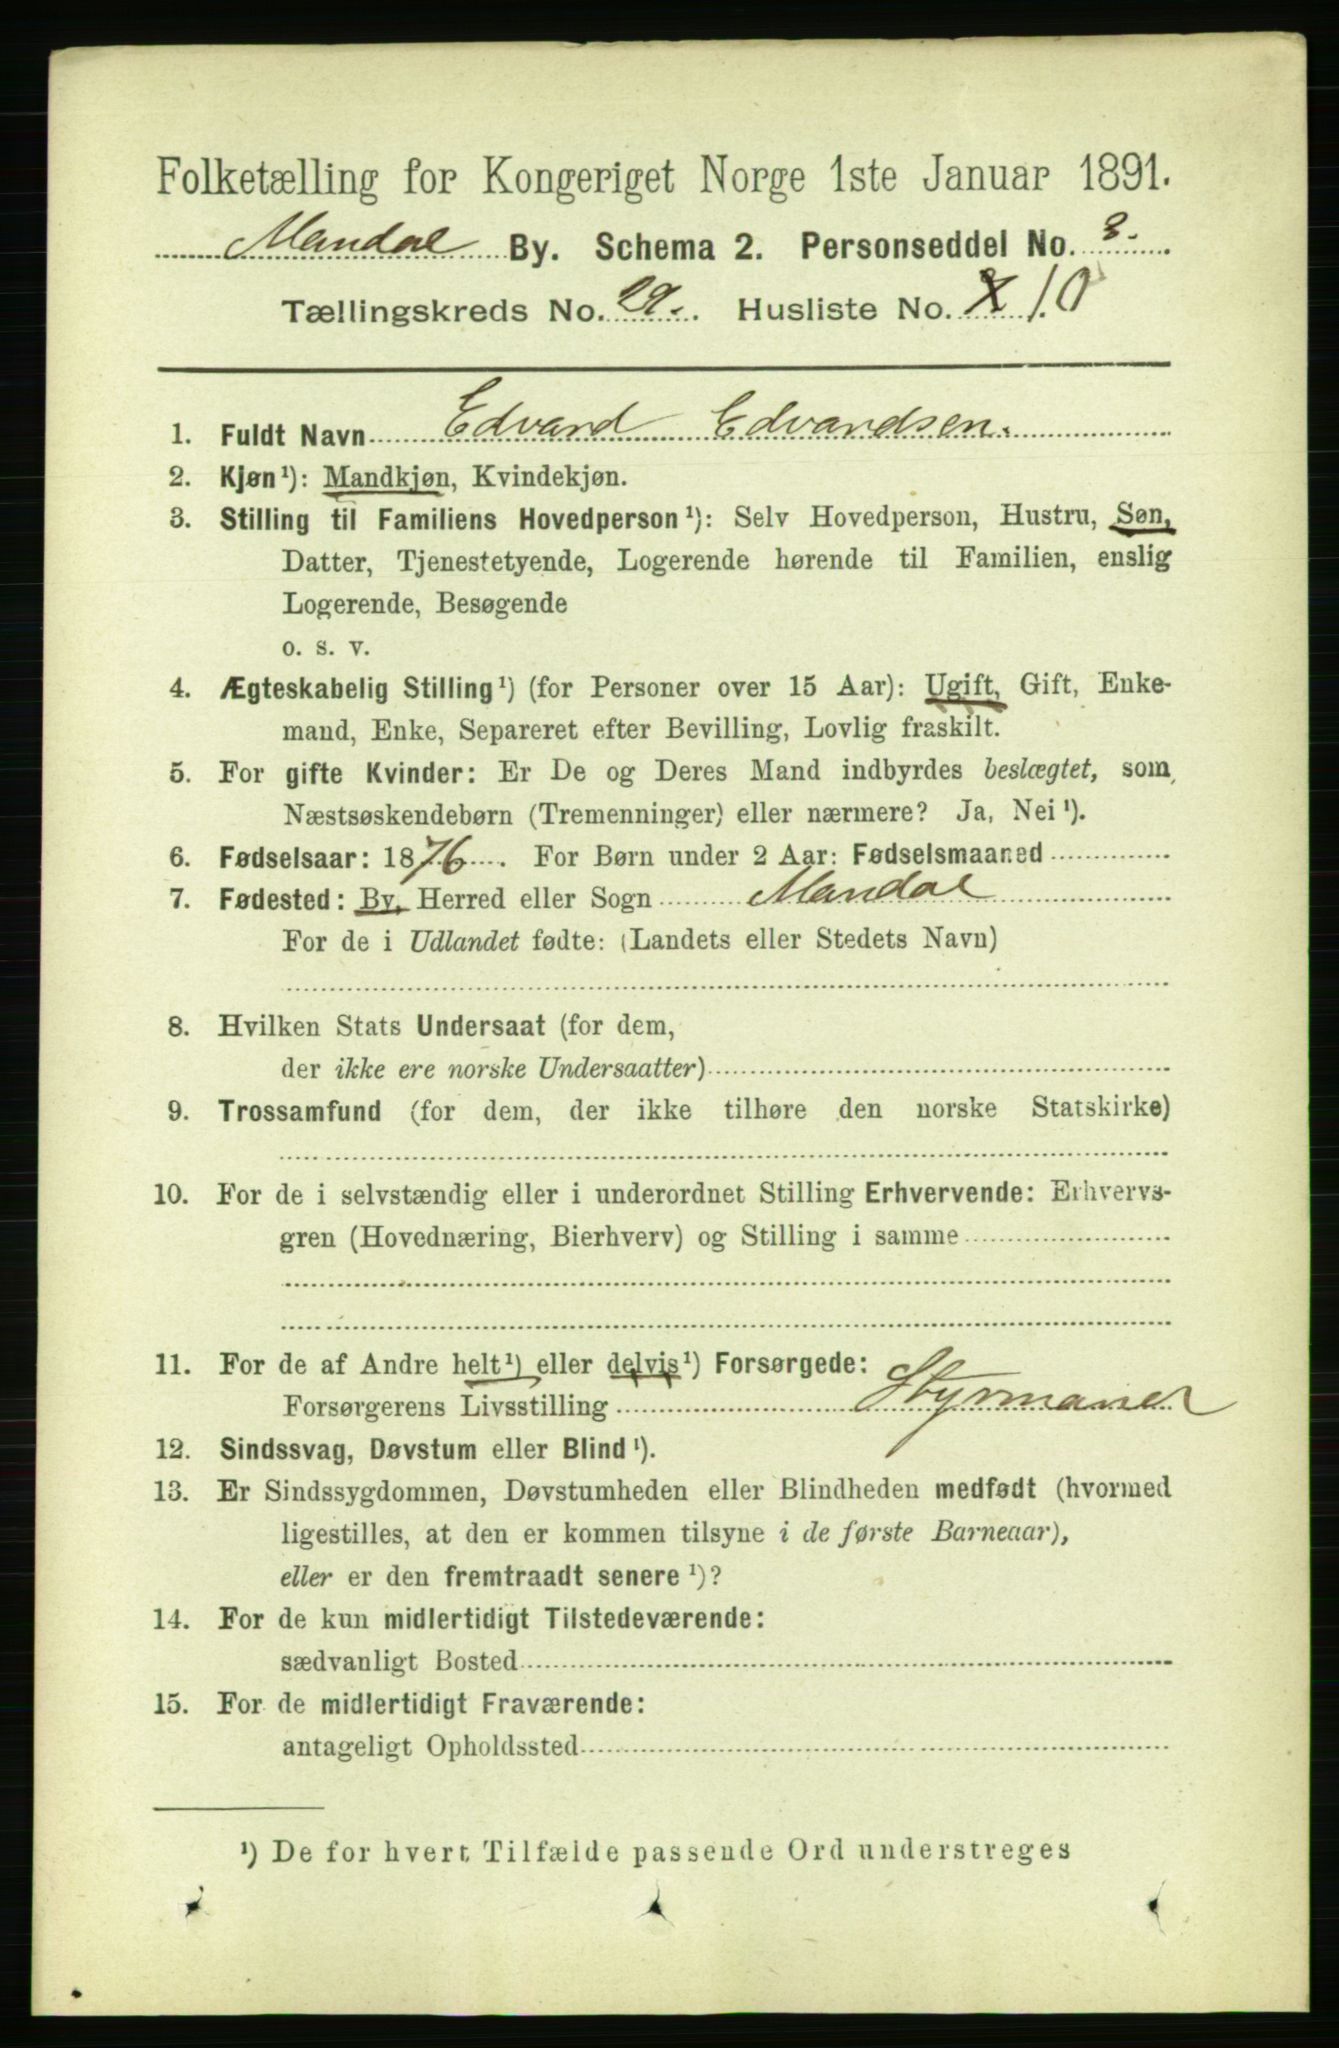 Folketælling for Kongeriget Norge 1ste Januar 1891.
Mandal By. Schema 2. Personseddel No. 3.
Tællingskreds No. 29. Husliste No. X 10
1. Fuldt Navn Edvard Edvardsen.
2. Kjøn¹): Mandkjøn, Kvindekjøn.
3. Stilling til Familiens Hovedperson¹): Selv Hovedperson, Hustru, Søn,
Datter, Tjenestetyende, Logerende hørende til Familien, enslig
Logerende, Besøgende
o. s. v.
4. Ægteskabelig Stilling¹) (for Personer over 15 Aar): Ugift, Gift, Enke-
mand, Enke, Separeret efter Bevilling, Lovlig fraskilt.
5. For gifte Kvinder: Er De og Deres Mand indbyrdes beslægtet, som
Næstsøskendebørn (Tremenninger) eller nærmere? Ja, Nei¹).
6. Fødselsaar: 1876. For Børn under 2 Aar: Fødselsmaaned
7. Fødested: By, Herred eller Sogn Mandal
For de i Udlandet fødte: (Landets eller Stedets Navn)
8. Hvilken Stats Undersaat (for dem,
der ikke ere norske Undersaatter)
9. Trossamfund (for dem, der ikke tilhøre den norske Statskirke)
10. For de i selvstændig eller i underordnet Stilling Erhvervende: Erhvervs-
gren (Hovednæring, Bierhverv) og Stilling i samme
11. For de af Andre helt¹) eller delvis¹) Forsørgede:
Forsørgerens Livsstilling Styrmand
12. Sindssvag, Døvstum eller Blind¹).
13. Er Sindssygdommen, Døvstumheden eller Blindheden medfødt (hvormed
ligestilles, at den er kommen tilsyne i de første Barneaar),
eller er den fremtraadt senere¹)?
14. For de kun midlertidigt Tilstedeværende:
sædvanligt Bosted
15. For de midlertidigt Fraværende:
antageligt Opholdssted
¹) De for hvert Tilfælde passende Ord understreges